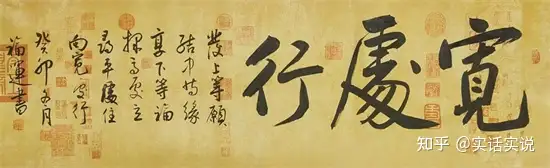 寬處行
發上等願
結中等緣
享下等福
擇高處立
尋平處住
向寬處行
癸卯冬月
福運書
知乎 @实话实说